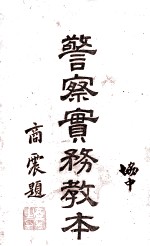 協中
警察實務教本
商震題